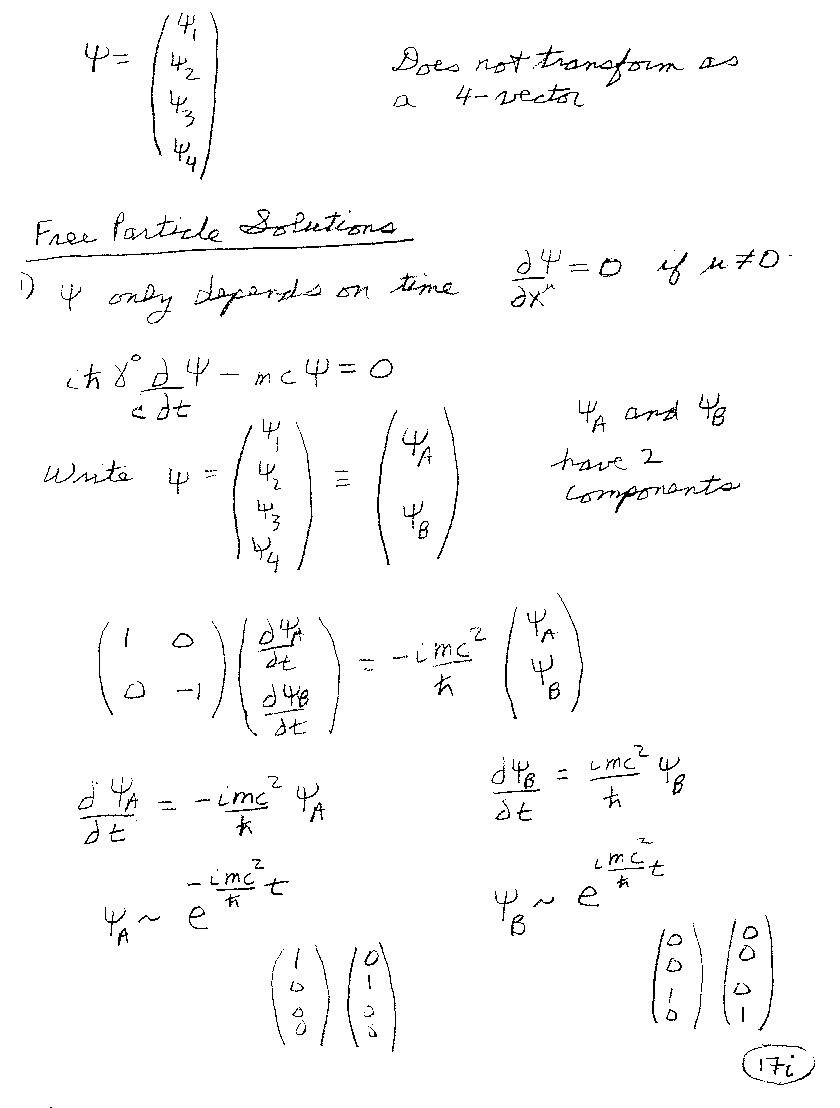 ψ = (ψ₁ ψ₂ ψ₃ ψ₄) Does not transform as
a 4-vector
Free Particle Solutions
1) ψ only depends on time ∂ψ/∂x^μ = 0 if μ ≠ 0.
iħ γ⁰ ∂/c∂t ψ - mcψ = 0
Write ψ = (ψ₁ ψ₂ ψ₃ ψ₄) ≡ (ψ_A ψ_B) ψ_A and ψ_B
have 2
components
(1 0 / 0 -1) (∂ψ_A/∂t ∂ψ_B/∂t) = -imc²/ħ (ψ_A ψ_B)
∂ψ_A/∂t = -imc²/ħ ψ_A ∂ψ_B/∂t = imc²/ħ ψ_B
ψ_A ~ e^(-imc²/ħ t) ψ_B ~ e^(imc²/ħ t)
(1 0 0 0) (0 1 0 0) (0 0 1 0) (0 0 0 1)
17i